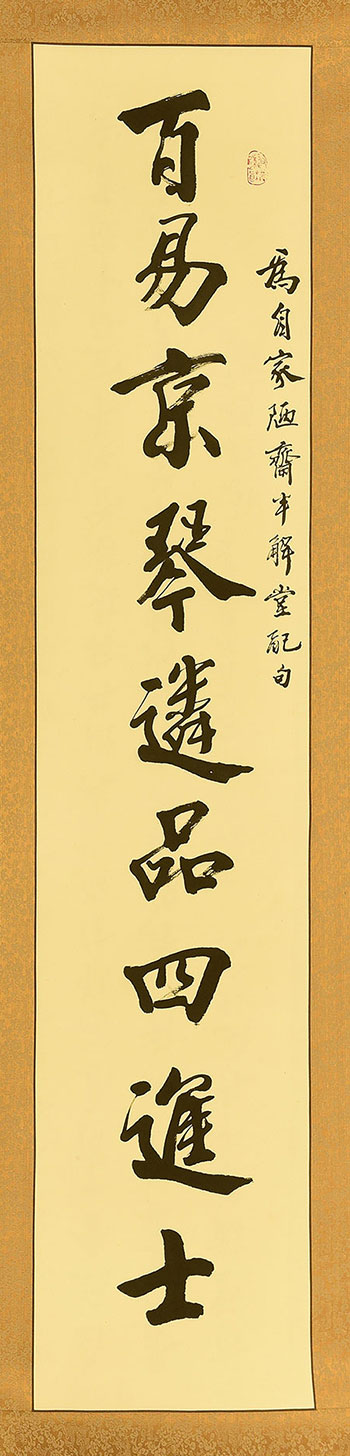 爲自家陋齋半解堂配句
百易京琴遴品四進士